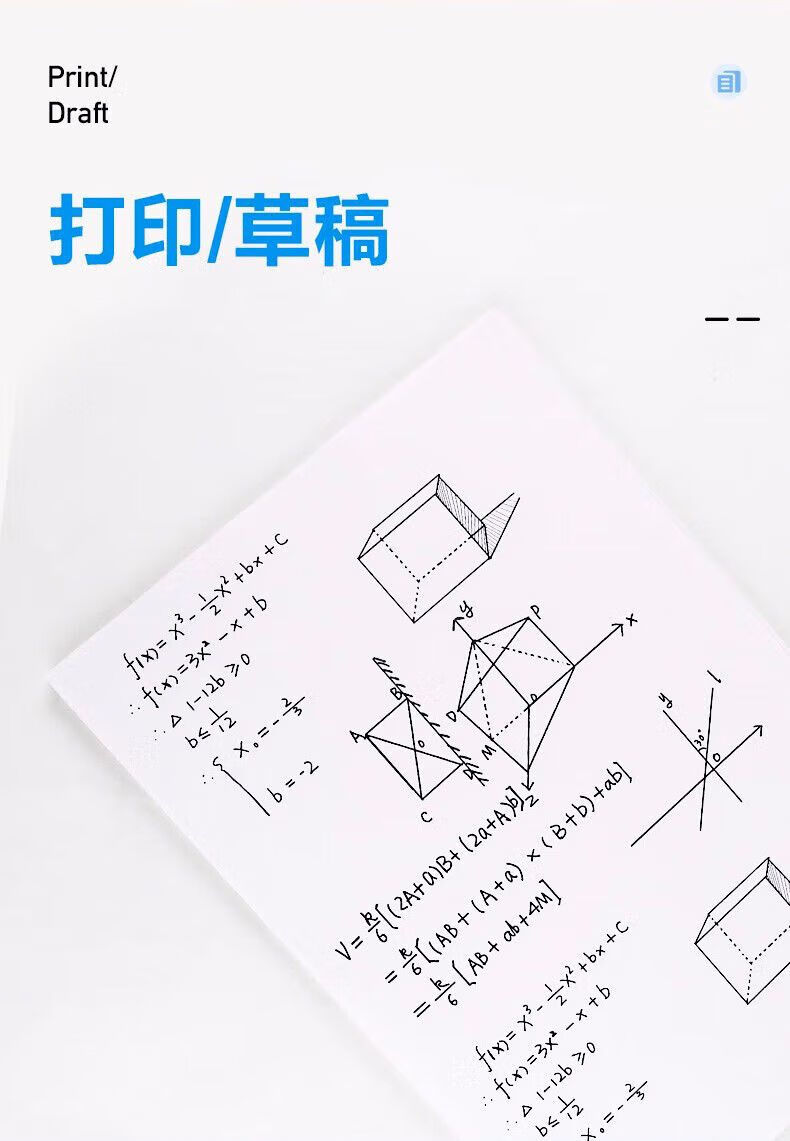 Print/
Draft
打印/草稿
f(x)=x³-½x²+bx+C
∴f(x)=3x²-x+b
∴△1-12b≥0
b≤1/12
∴{x₀=-2/3
b=-2
B
A
O
D
C
y
P
x
D
M
Z
y
l
30°
O
V=k/6[(2A+a)B+(2a+A)b]
=k/6[(AB+(A+a)×(B+b)+ab]
=k/6[AB+ab+4M]
f(x)=x³-½x²+bx+C
∴f(x)=3x²-x+b
∴△1-12b≥0
b≤1/12
x₀=-2/3